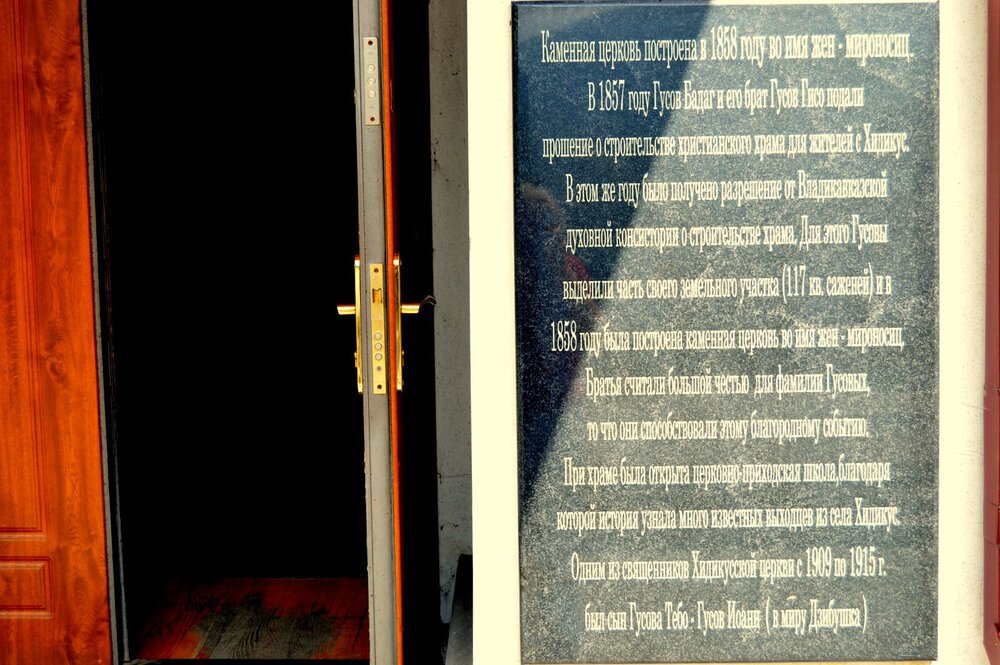 Каменная церковь построена в 1858 году во имя жен - мироносиц.
В 1857 году Гусов Бадаг и его брат Гусов Гисо подали
прошение о строительстве христианского храма для жителей с Хидикус.
В этом же году было получено разрешение от Владикавказской
духовной консистории о строительстве храма. Для этого Гусовы
выделили часть своего земельного участка (117 кв. саженей) и в
1858 году была построена каменная церковь во имя жен - мироносиц.
Братья считали большой честью для фамилии Гусовых,
то что они способствовали этому благородному событию.
При храме была открыта церковно-приходская школа,благодаря
которой история узнала много известных выходцев из села Хидикус.
Одним из священников Хидикусской церкви с 1909 по 1915 г.
был сын Гусова Тебо - Гусов Иоанн ( в миру Дзибушка )